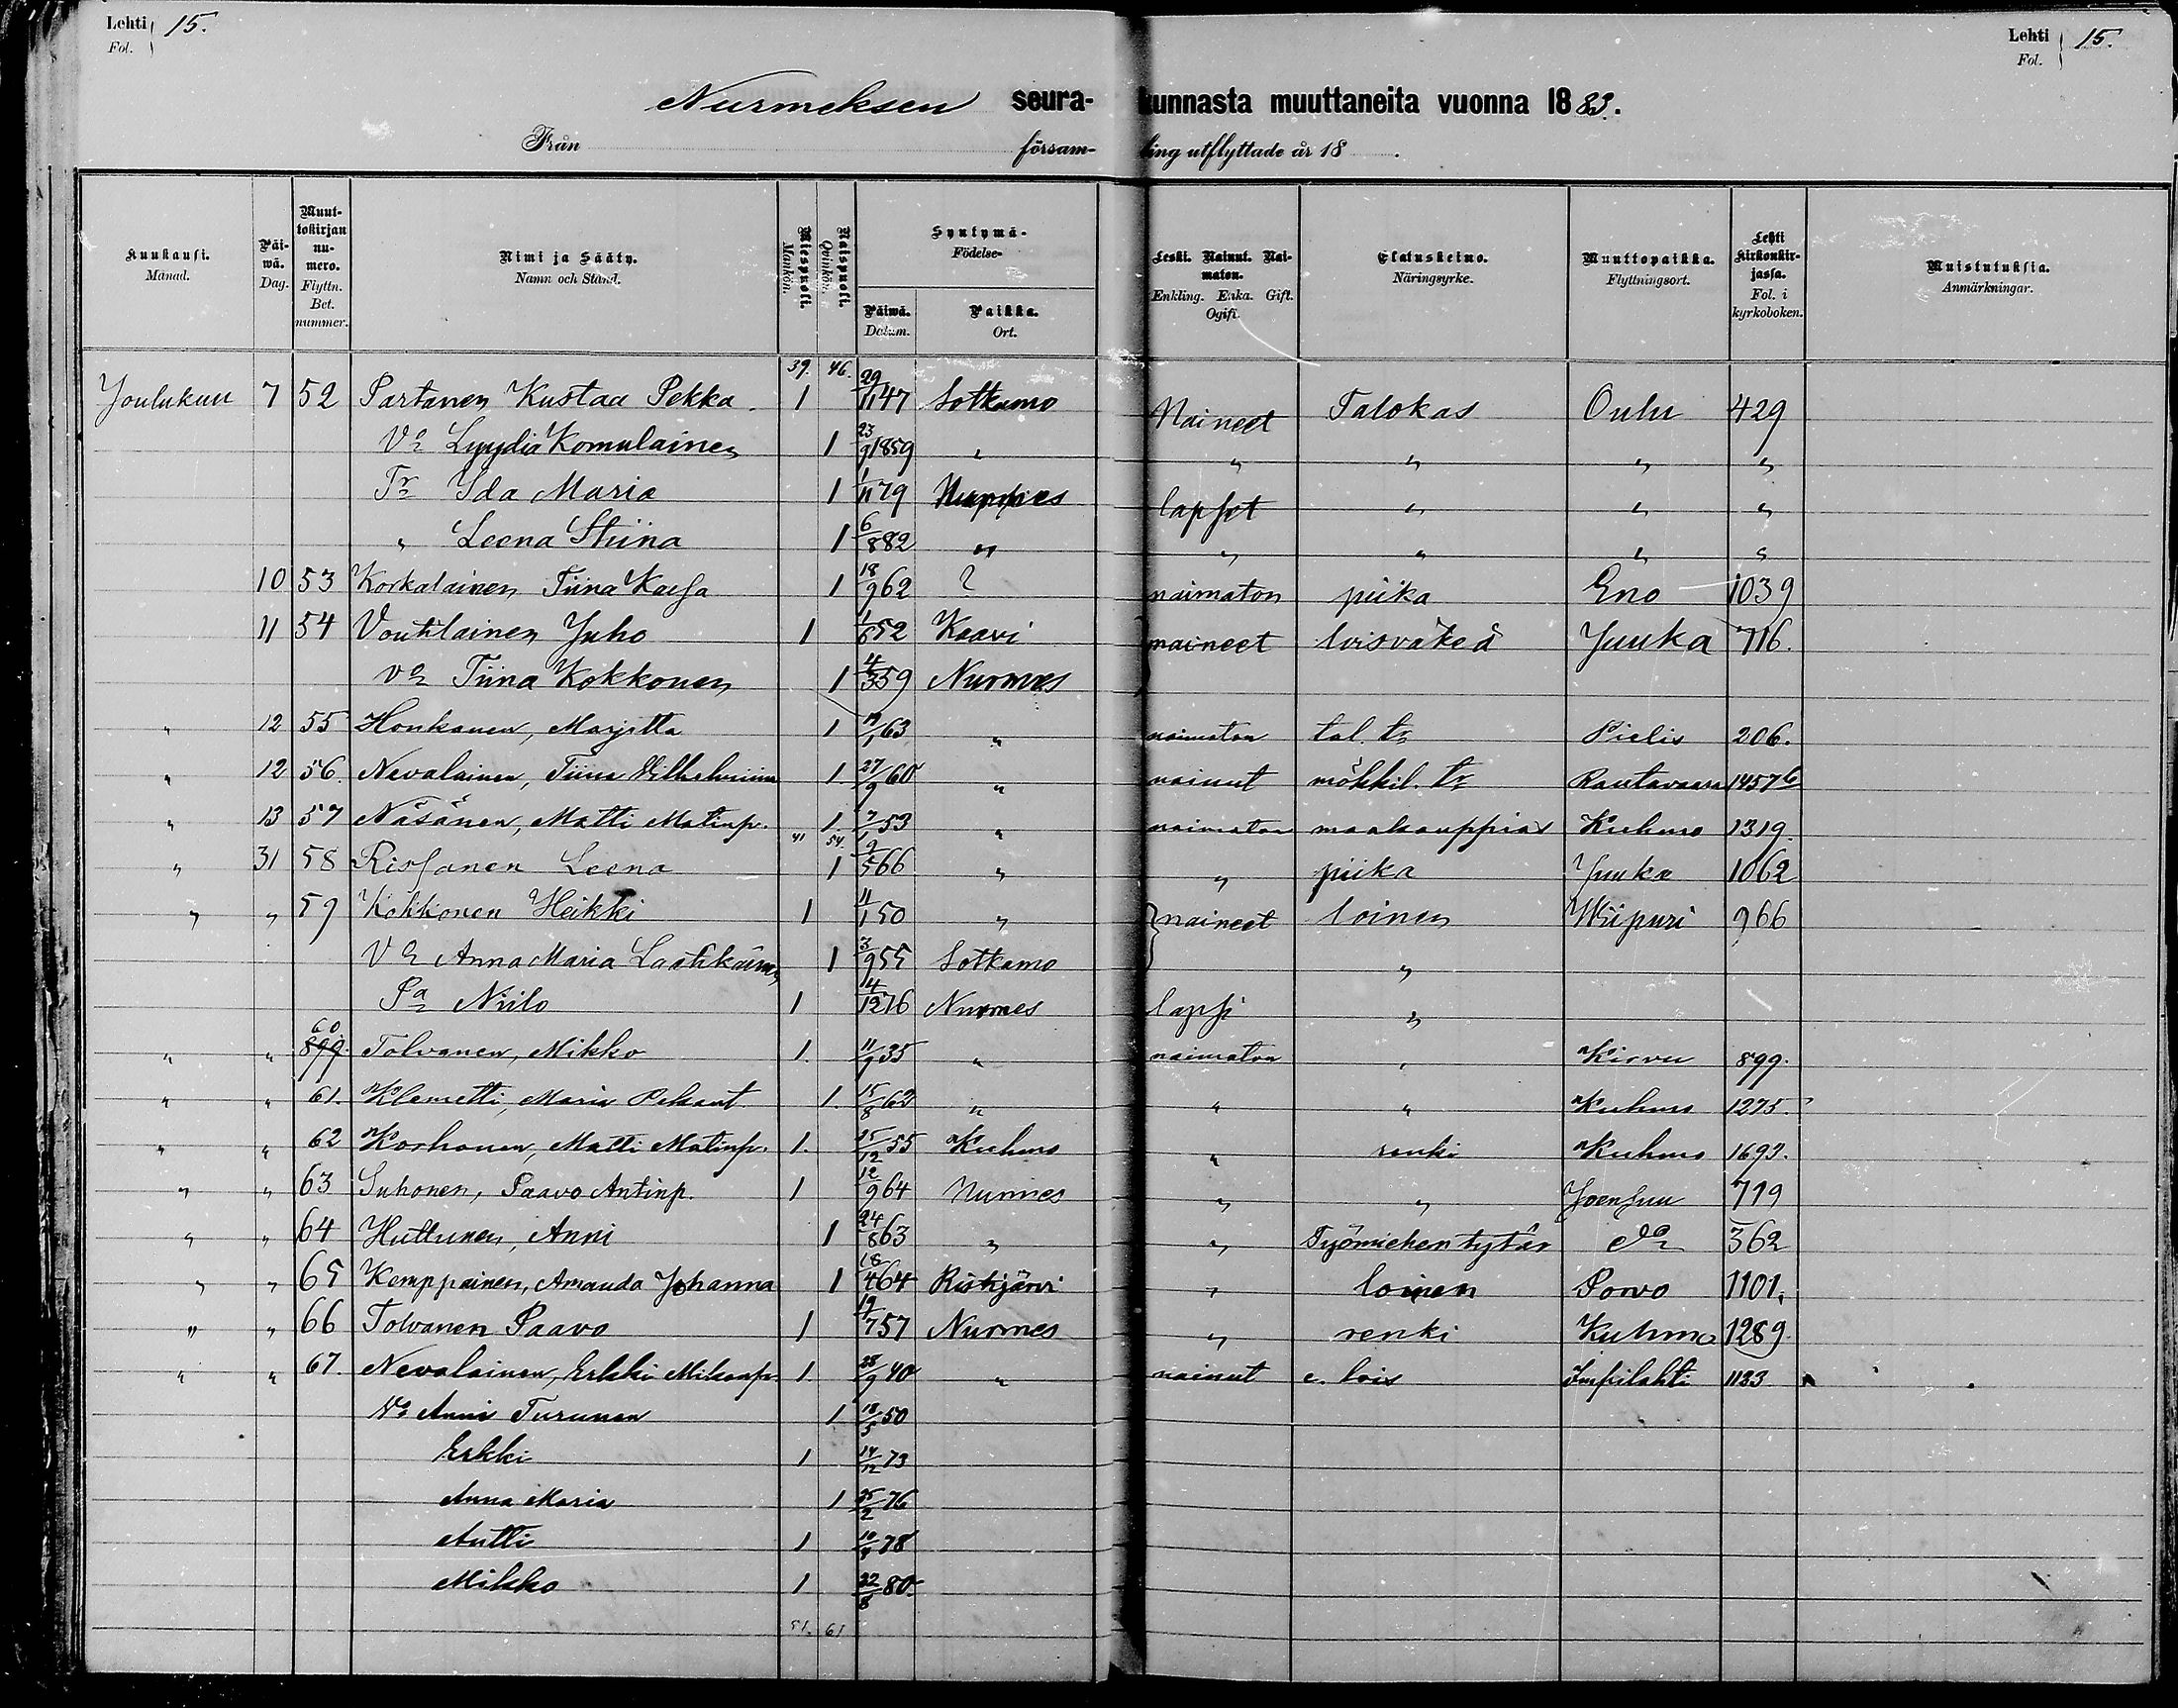 Lehti Fol. 15.
Lehti Fol. 15.
Nurmeksen seurakunnasta muuttaneita vuonna 1883.
Från försam-ling utflyttade år 18 .
Kuukausi. Månad. Päi-wä. Dag. Muut-tokirjan nu-mero. Flyttn. Bet. nummer. Nimi ja Sääty. Namn och Stånd. Miespuoli. Mankön. Naispuoli. Qvinkön. Syntymä- Födelse- Päiwä. Datum. Paikka. Ort. Leski. Nainut. Nai-maton. Enkling. Enka. Gift. Ogift. Elatuskeino. Näringsyrke. Muuttopaikka. Flyttningsort. Lehti kirkonkir-jassa. Fol. i kyrkoboken. Muistutuksia. Anmärkningar.
39. 46.
Joulukuu 7 52 Partanen Kustaa Pekka. 1 29/11 47 Sotkamo Naineet Talokas Oulu 429
Vo Lyydia Komulainen 1 23/9 1859 " " " " "
Tr Ida Maria 1 1/11 79 Nurmes lapset " " "
" Leena Stiina 1 6/8 82 " " " " "
10 53 Korkalainen Tiina Kaisa 1 18/9 62 ? naimaton piika Eno 1039
11 54 Voutilainen Juho 1 1/6 52 Kaavi naineet loisväkeä Juuka 716.
vo Tiina Kokkonen 1 4/3 59 Nurmes
" 12 55 Honkanen, Marjetta 1 19/1 63 " naimaton tal. tr Pielis 206.
" 12 56. Nevalainen, Tiina Vilhelmiina 1. 27/9 60 " nainut mökkil. tr Rautavaara 1457b
" 13 57 Näsänen, Matti Matinp. 1. 7/1 53 " naimaton maakauppias Kuhmo 1319.
41 54.
" 31 58 Rissanen Leena 1 9/5 66 " " piika Juuka 1062
" " 59 Kokkonen Heikki 1 11/1 50 " naineet loinen Wiipuri 966
Vo Anna Maria 1 3/9 55 Sotkamo "
Pa Niilo 1 14/12 76 Nurmes lapsi "
" " 60 899. Tolvanen, Mikko 1. 11/9 35 " naimaton " Kirvu 899.
" " 61. Klemetti, Maria Pekant. 1. 15/8 62 " " " Kuhmo 1275.
" " 62 Korhonen, Matti Matinp. 1. 25/12 55 Kuhmo " renki Kuhmo 1693.
" " 63 Suhonen, Paavo Antinp. 1 12/9 64 Nurmes " " Joensuu 719
" " 64 Huttunen, Anni 1 24/8 63 " " Työmiehen tytär do 362
" " 65 Kemppainen, Amanda Johanna 1 18/4 64 Ristijärvi " loinen Porvo 1101.
" " 66 Tolvanen Paavo 1 19/7 57 Nurmes " renki Kuhmo 1289.
" " 67. Nevalainen, Erkki Mikonp. 1. 28/9 40 " nainut e. lois Impilahti 1123
Vo Anni Turunen 1 18/5 50
Erkki 1 14/12 73
Anna Maria 1 25/2 76
Antti 1 10/9 78
Mikko 1 22/8 80.
51. 61